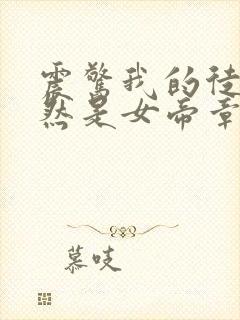 震惊我的徒
然是女帝章
慕吱